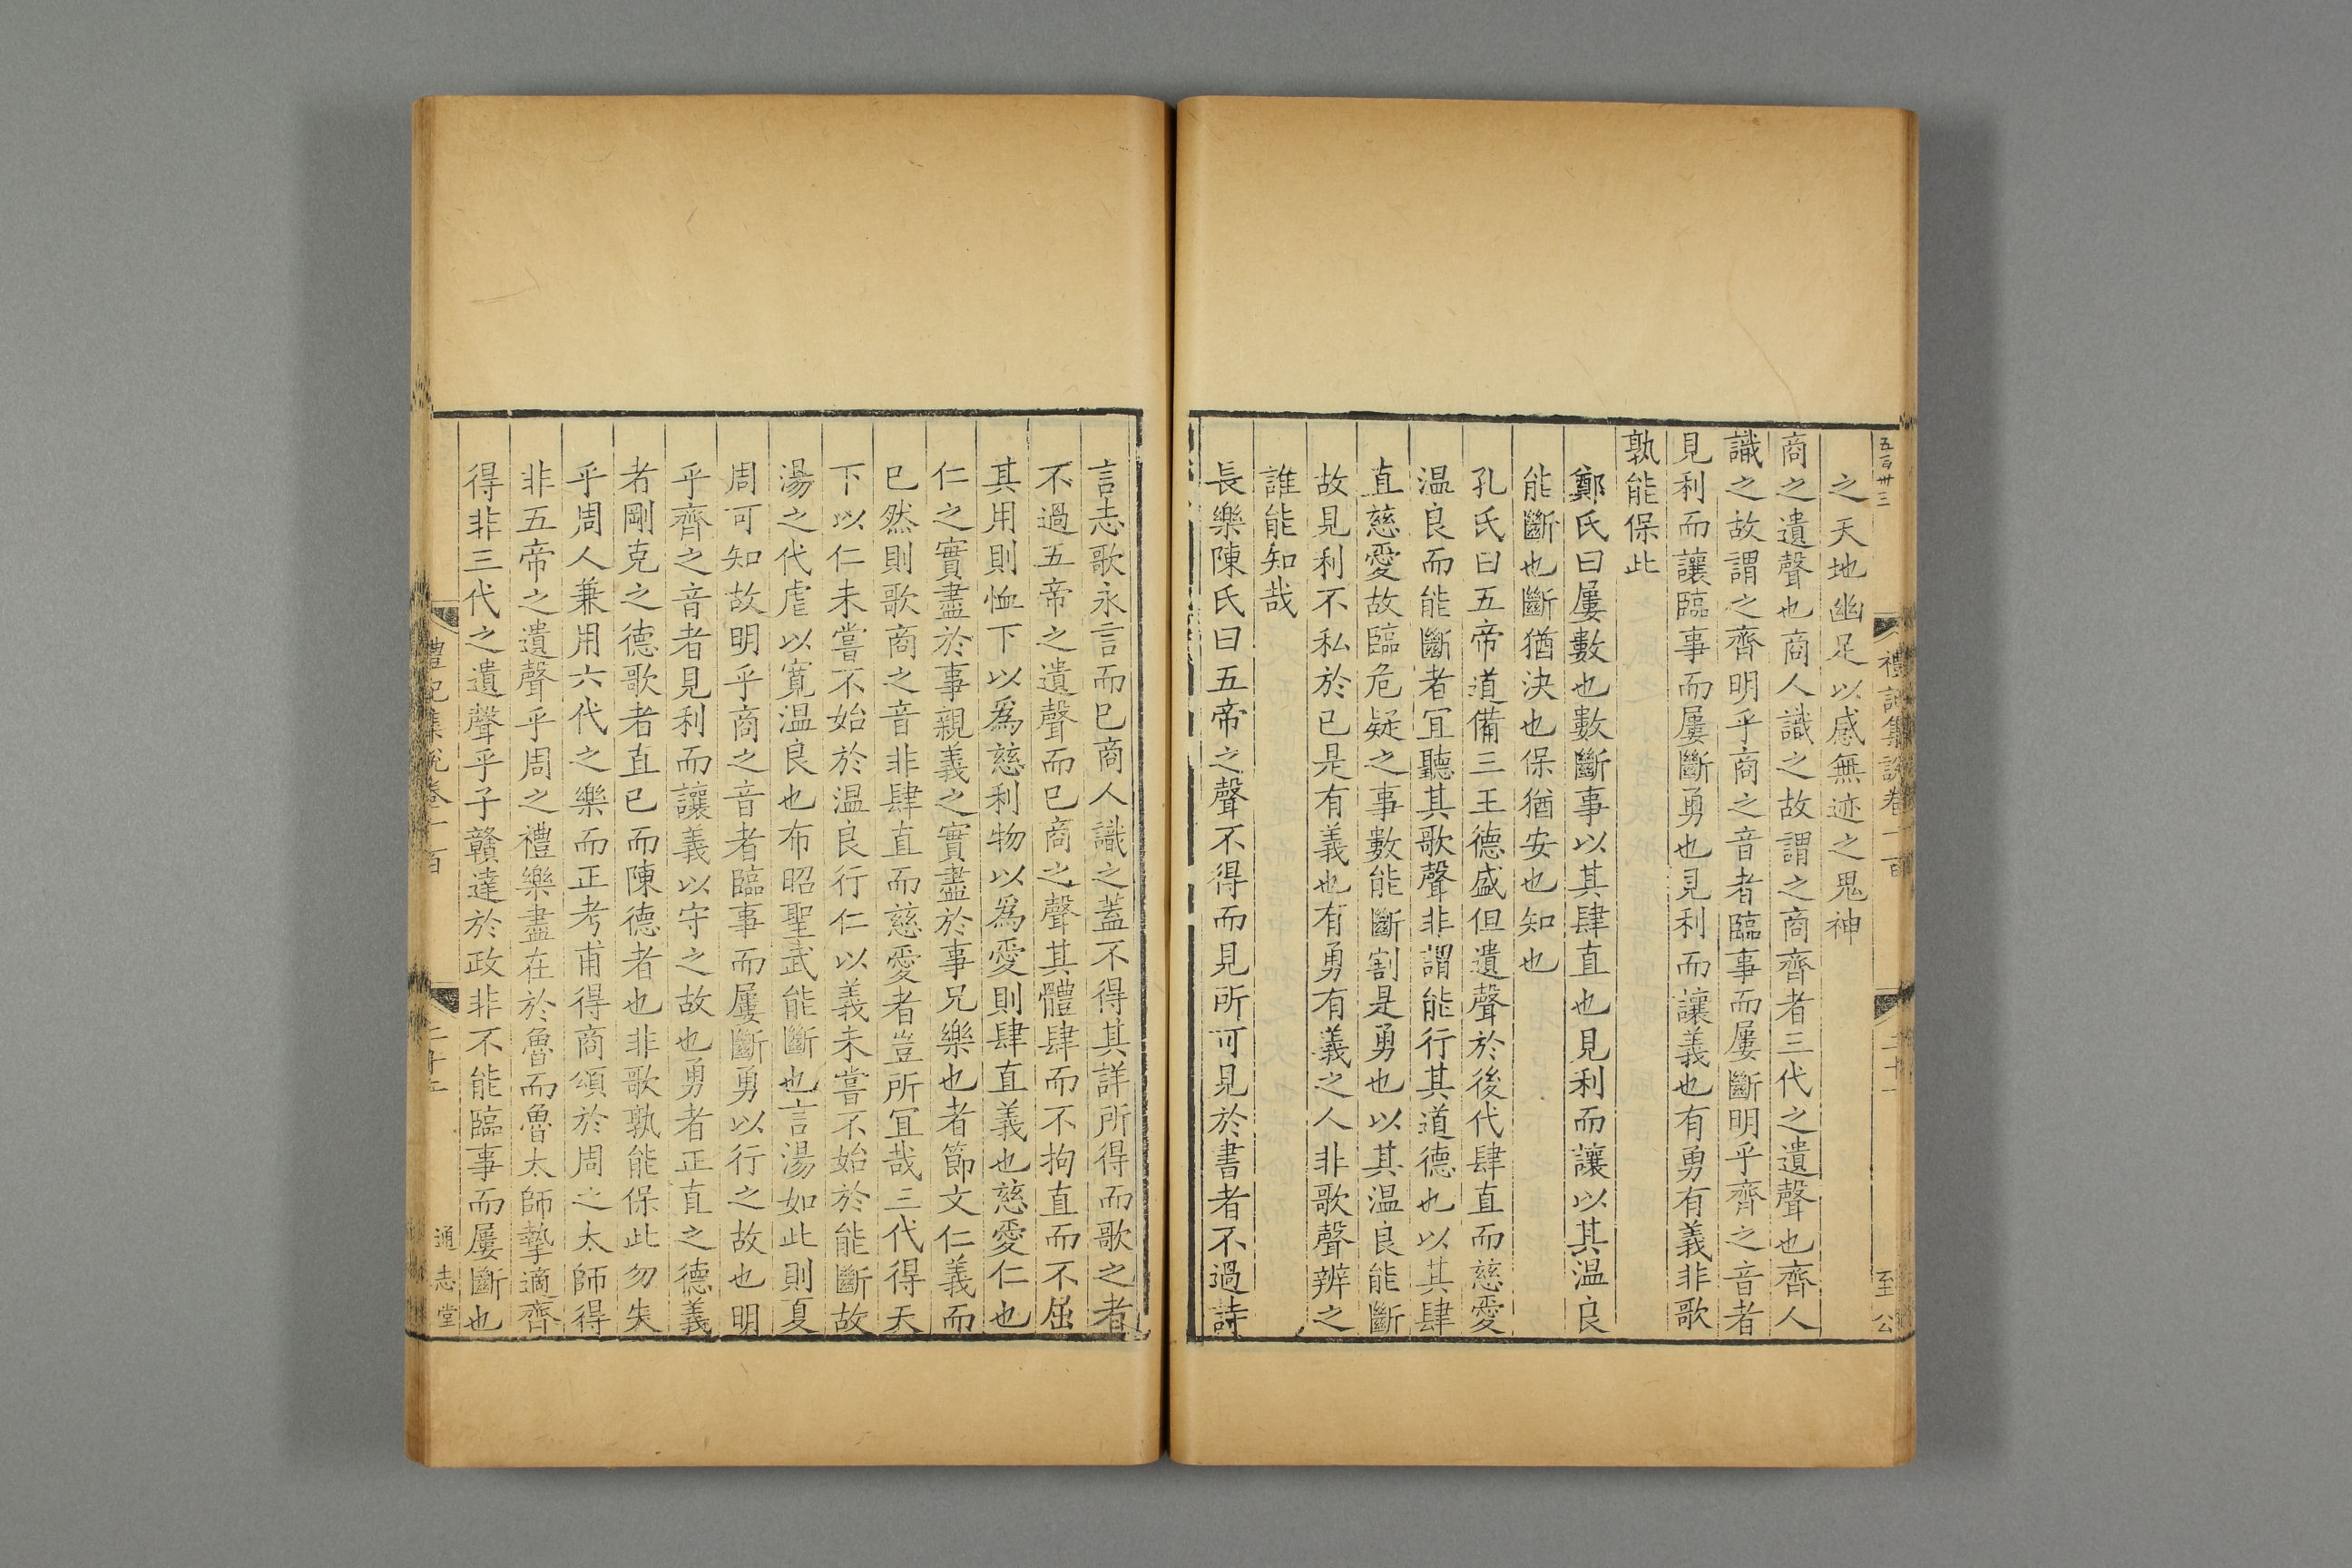 五百卅三
禮記集說卷一百
二十一
至公
之天地幽足以感無迹之鬼神
商之遺聲也商人識之故謂之商齊者三代之遺聲也齊人
識之故謂之齊明乎商之音者臨事而屢斷明乎齊之音者
見利而讓臨事而屢斷勇也見利而讓義也有勇有義非歌
孰能保此
鄭氏曰屢數也數斷事以其肆直也見利而讓以其温良
能斷也斷猶決也保猶安也知也
孔氏曰五帝道備三王德盛但遺聲於後代肆直而慈愛
温良而能斷者宜聽其歌聲非謂能行其道德也以其肆
直慈愛故臨危疑之事數能斷割是勇也以其温良能斷
故見利不私於已是有義也有勇有義之人非歌聲辨之
誰能知哉
長樂陳氏曰五帝之聲不得而見所可見於書者不過詩
言志歌永言而已商人識之蓋不得其詳所得而歌之者
不過五帝之遺聲而已商之聲其體肆而不拘直而不屈
其用則恤下以爲慈利物以爲愛則肆直義也慈愛仁也
仁之實盡於事親義之實盡於事兄樂也者節文仁義而
已然則歌商之音非肆直而慈愛者豈所宜哉三代得天
下以仁未嘗不始於温良行仁以義未嘗不始於能斷故
湯之代虐以寬温良也布昭聖武能斷也言湯如此則夏
周可知故明乎商之音者臨事而屢斷勇以行之故也明
乎齊之音者見利而讓義以守之故也勇者正直之德義
者剛克之德歌者直已而陳德者也非歌孰能保此勿失
乎周人兼用六代之樂而正考甫得商頌於周之太師得
非五帝之遺聲乎周之禮樂盡在於魯而魯太師摯適齊
得非三代之遺聲乎子贛達於政非不能臨事而屢斷也
禮記集說卷一百
通志堂